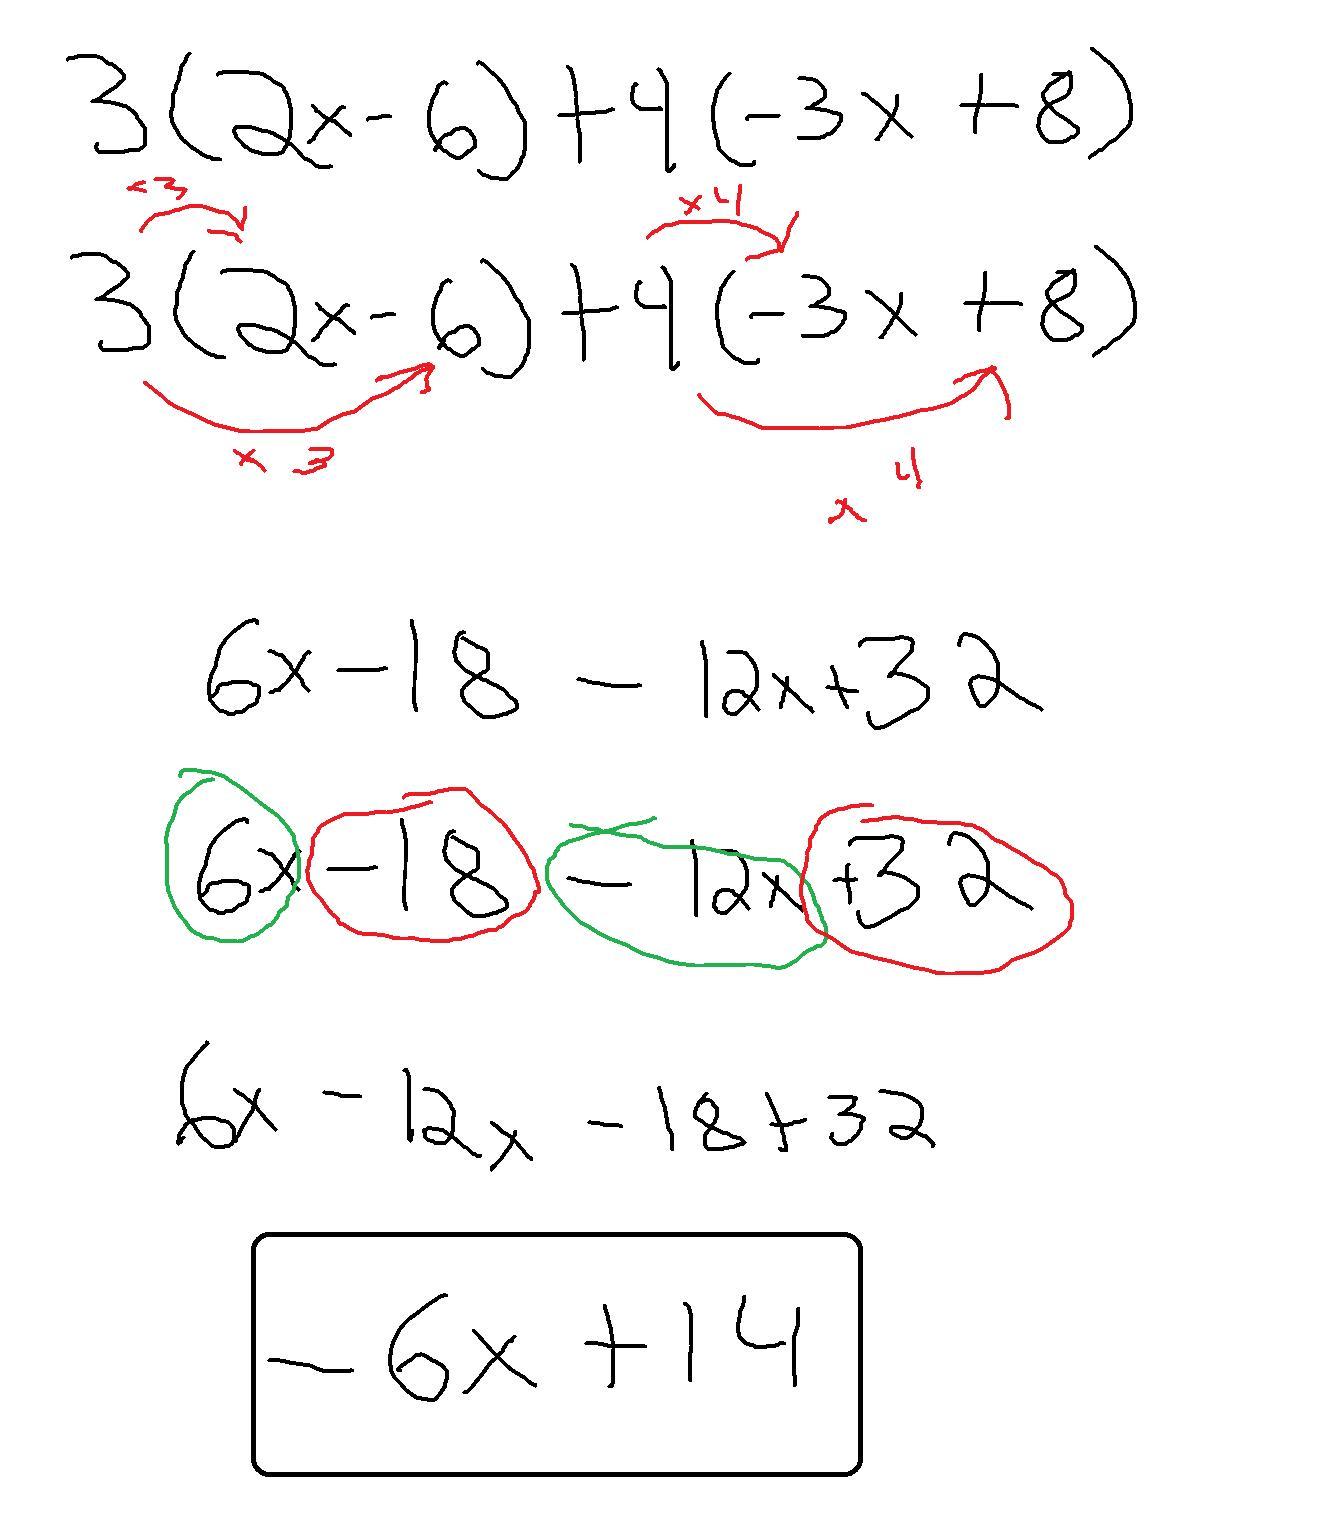 3(2x-6)+4(-3x+8)
×3 ×4
3(2x-6)+4(-3x+8)
×3 ×4
6x-18-12x+32
6x-18-12x+32
6x-12x-18+32
-6x+14